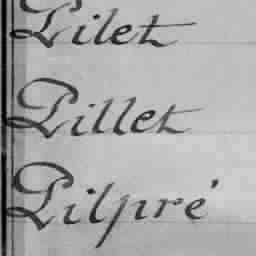 Pilet
Pillet
Pilpré